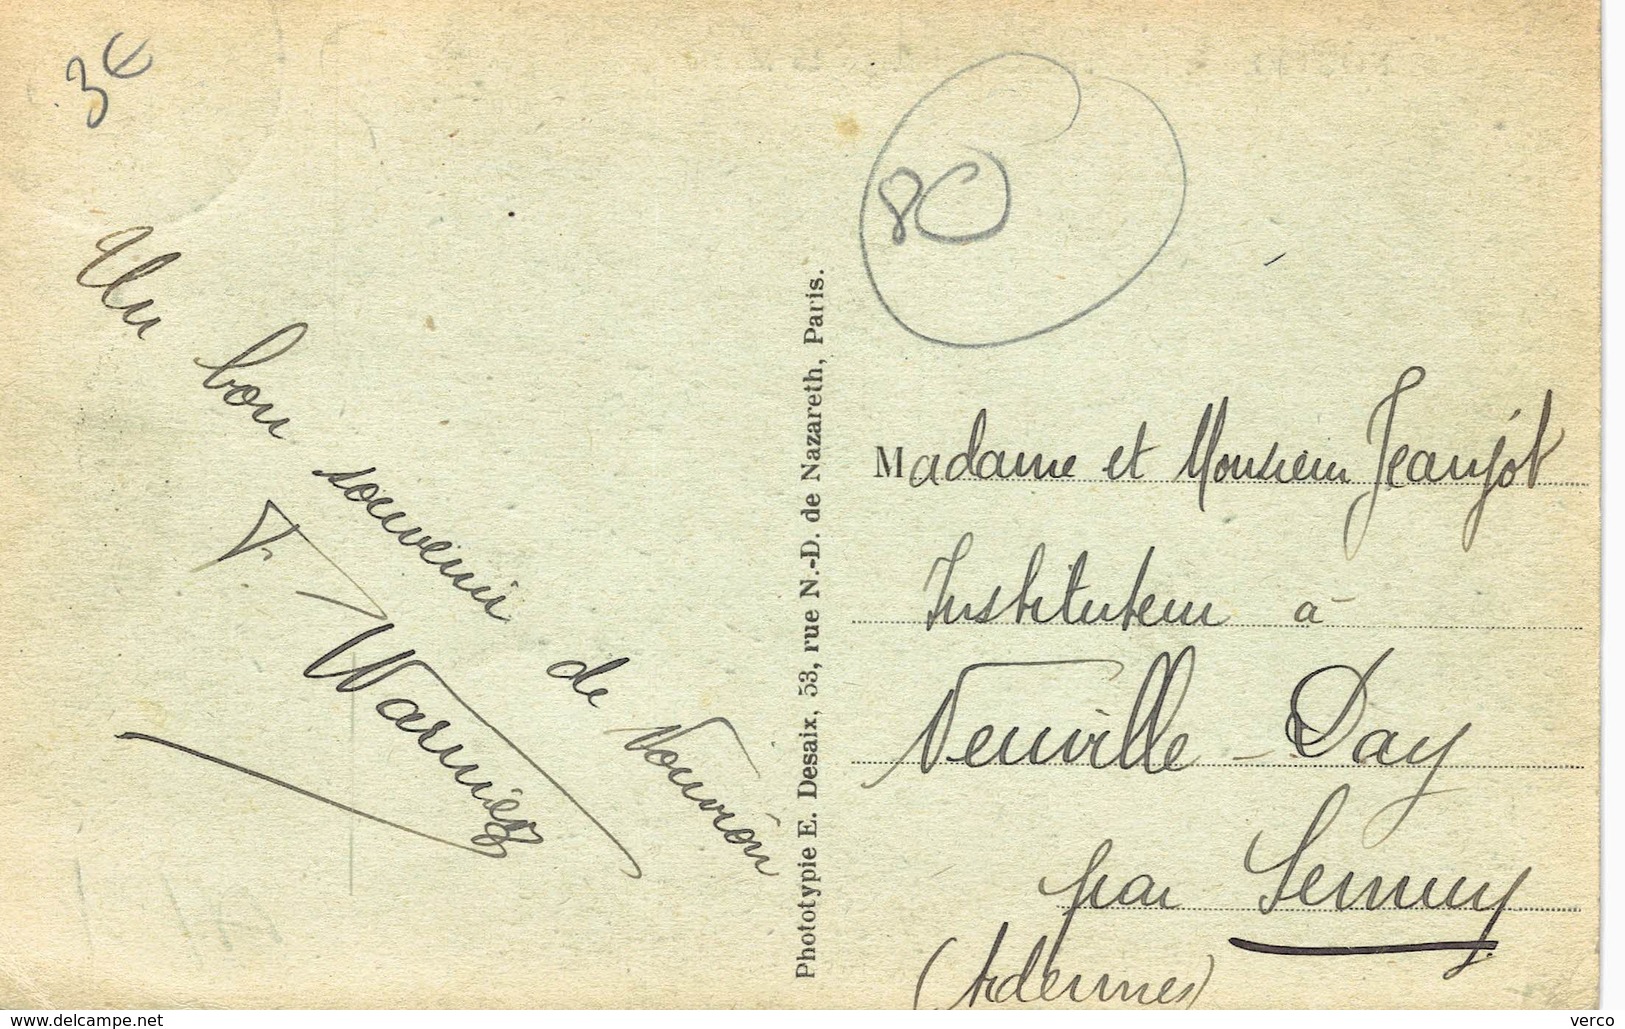 3€
Un bon souvenir de Nouvion
F. Warniez
Phototypie E. Desaix, 53, rue N.-D. de Nazareth, Paris.
80
Madame et Monsieur Jeanjot
Instituteur à
Neuville-Day
par Semuy
(Ardennes)
www.delcampe.net
verco